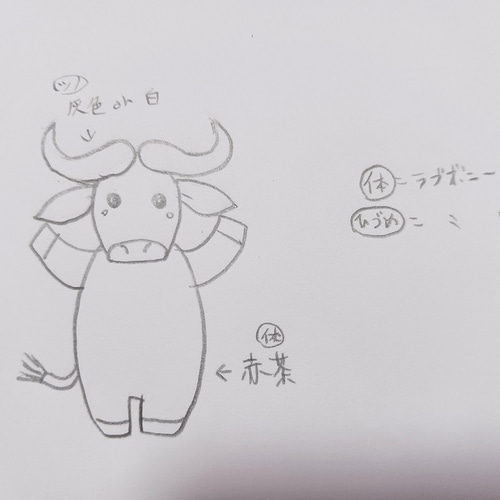 ツノ
灰色 or 白
体 = ラブボニー
ひづめ = 〃
体
← 赤茶